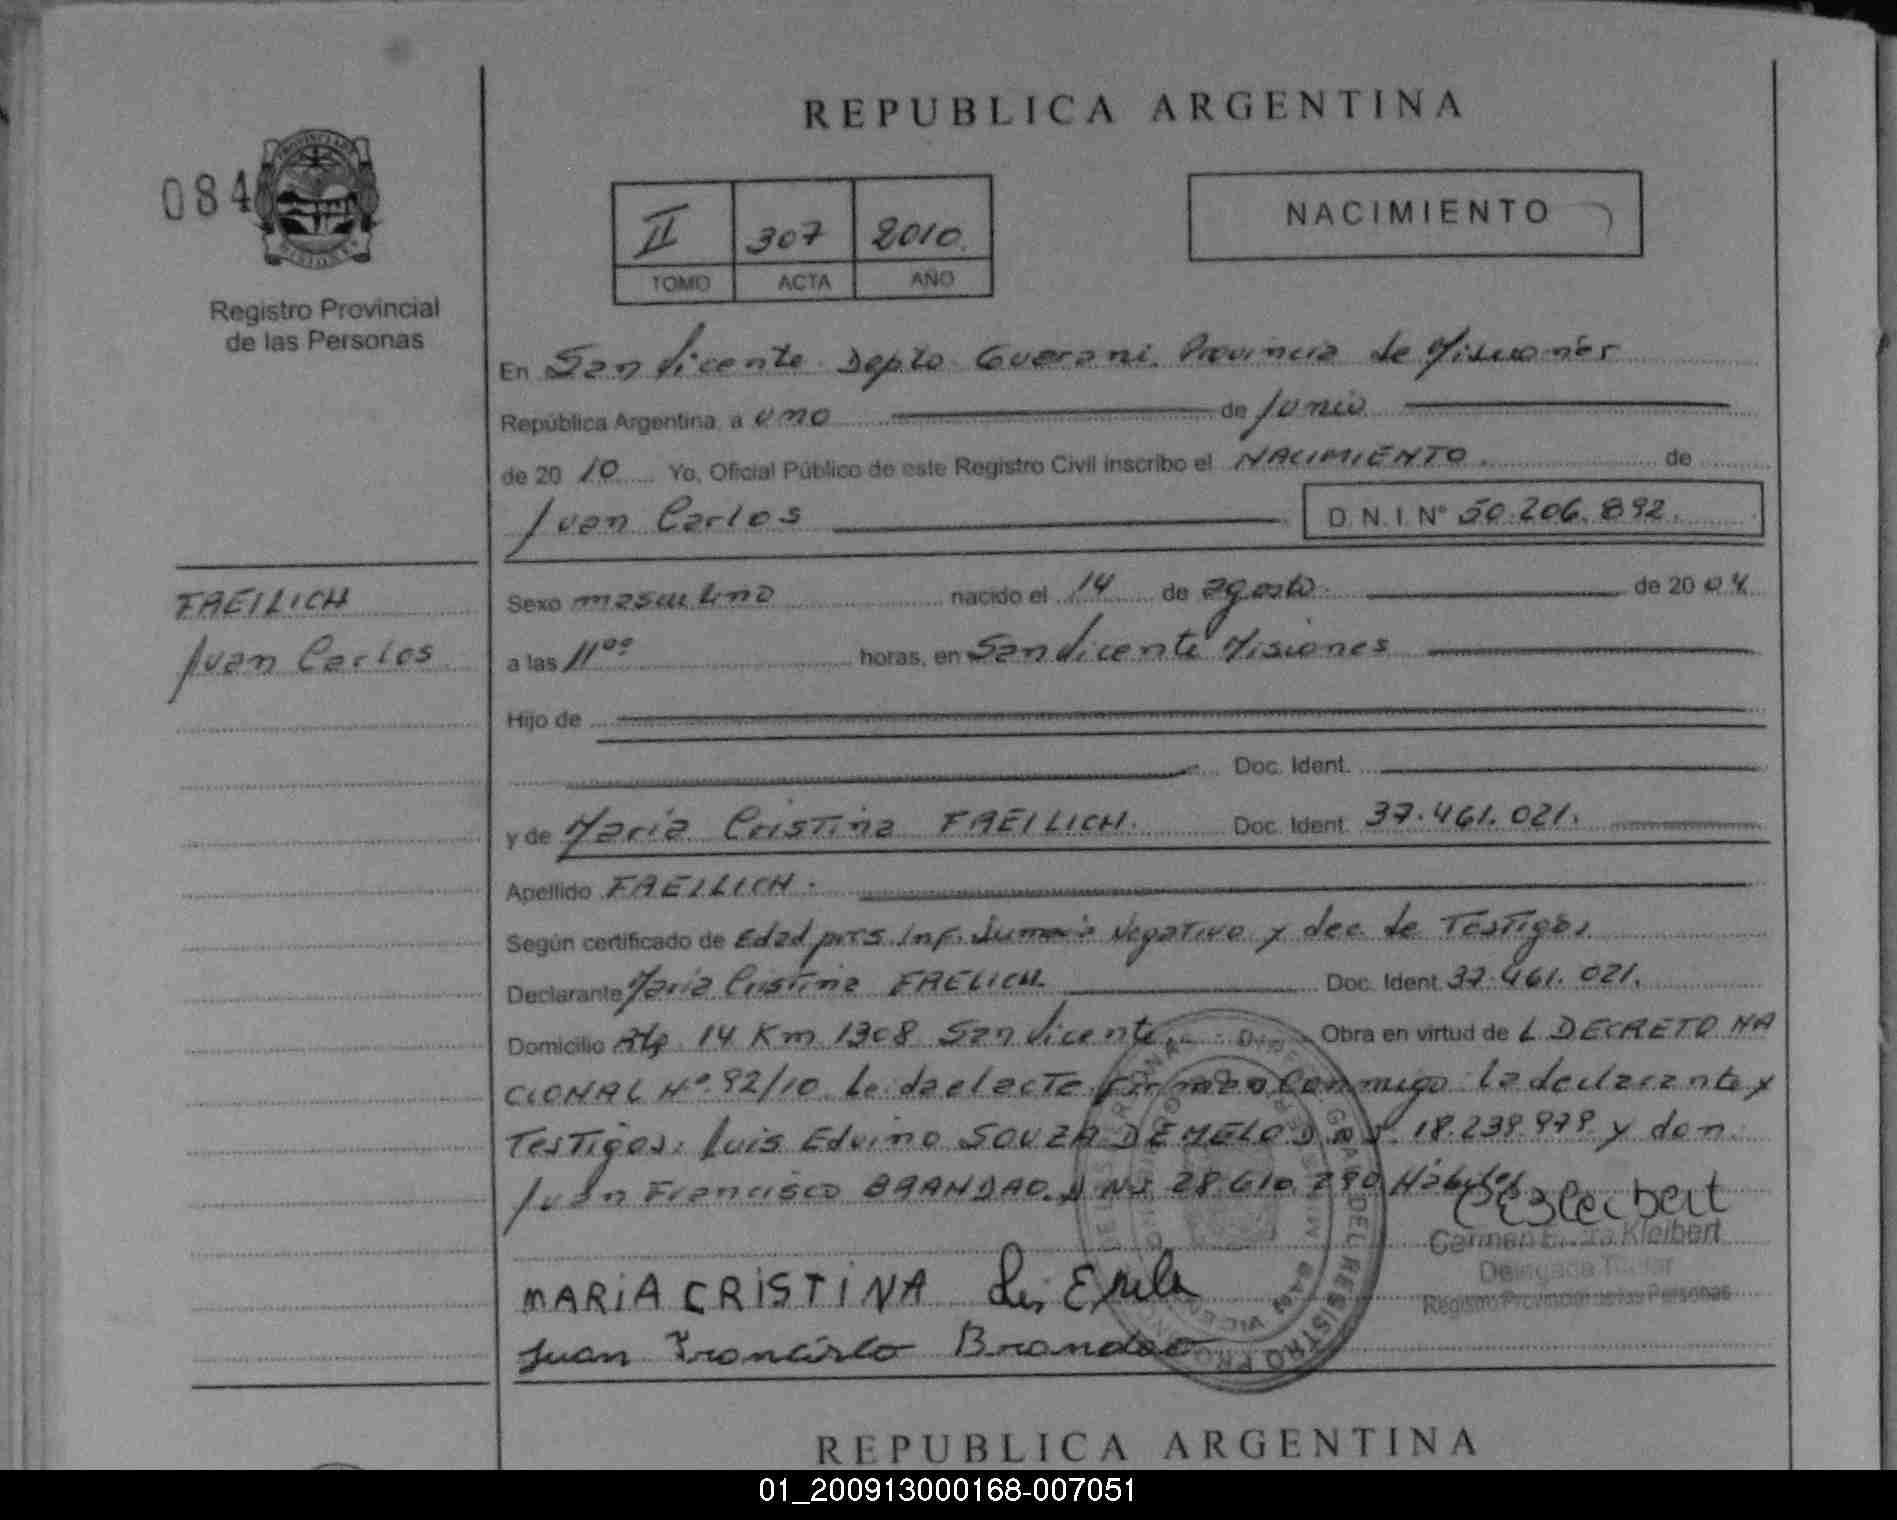 REPUBLICA ARGENTINA
084
II 307 2010
TOMO ACTA AÑO
NACIMIENTO
Registro Provincial
de las Personas
En San Vicente Depto Guarani. Provincia de Misiones
República Argentina, a uno de Junio
de 20 10 Yo, Oficial Público de este Registro Civil inscribo el NACIMIENTO. de
Juan Carlos D.N.I. N° 50.206.892.
FREILICH
Juan Carlos
Sexo masculino nacido el 14 de agosto. de 20 04
a las 11°° horas, en San Vicente Misiones
Hijo de
Doc. Ident.
y de Maria Cristina FREILICH. Doc. Ident. 37.461.021.
Apellido FREILICH.
Según certificado de Edad Inf. Negativo y dec. de Testigos
Declarante Maria Cristina FRELICH Doc. Ident. 37.461.021.
Domicilio 14 Km 1308 San Vicente. Obra en virtud de L DECRETO NA
CIONAL N° 92/10. Firman Conmigo la declarante y
Testigos: Luis Edvino SOUZA DEMELO DNI. 18.239.979 y don
Juan Francisco BRANDAO. DNI 28.610.290 Hábiles
Carmen Kleibert
Delegada Titular
Registro Provincial de las Personas
MARIA CRISTINA
Juan Francisco Brandao
REPUBLICA ARGENTINA
01_200913000168-007051